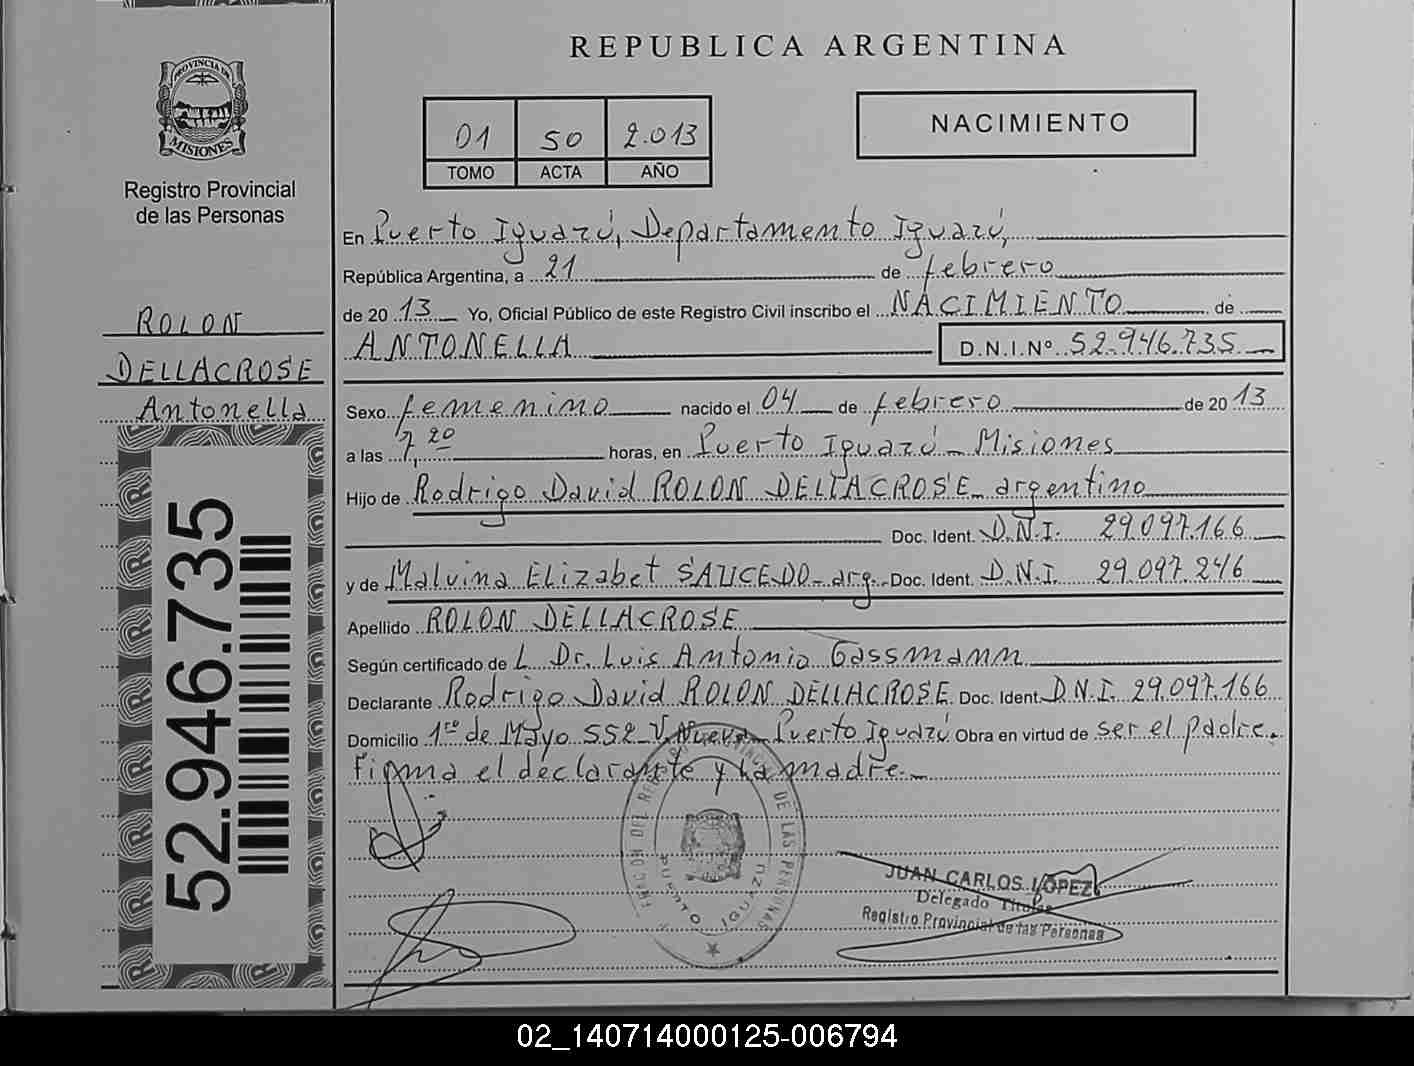 REPUBLICA ARGENTINA
PROVINCIA DE
MISIONES
Registro Provincial
de las Personas
ROLON
DELLACROSE
Antonella
52.946.735
01 50 2.013
TOMO ACTA AÑO
NACIMIENTO
En Puerto Iguazú, Departamento Iguazú,
República Argentina, a 21 de febrero
de 20 13 Yo, Oficial Público de este Registro Civil inscribo el NACIMIENTO de
ANTONELLA D.N.I.Nº 52.946.735
Sexo femenino nacido el 04 de febrero de 20 13
a las 7,20 horas, en Puerto Iguazú - Misiones
Hijo de Rodrigo David ROLON DELLACROSE - argentino
Doc. Ident. D.N.I. 29.097.166
y de Malvina Elizabet SAUCEDO - arg. Doc. Ident. D.N.I. 29.097.246
Apellido ROLON DELLACROSE
Según certificado de L Dr. Luis Antonio Gassmann
Declarante Rodrigo David ROLON DELLACROSE Doc. Ident. D.N.I. 29.097.166
Domicilio 1ro de Mayo 552 V. Nueva - Puerto Iguazú Obra en virtud de ser el padre.
Firma el declarante y la madre.-
DE LAS PERSONAS
PUERTO IGUAZU
JUAN CARLOS LÓPEZ
Delegado Titular
Registro Provincial de las Personas
02_140714000125-006794